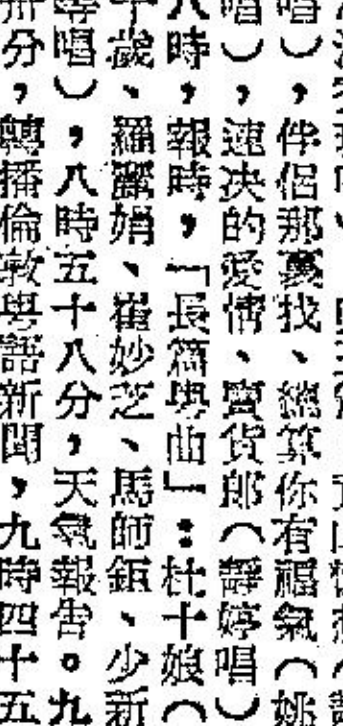 唱），伴侶那裏找、總算你有福氣（姚
唱），速決的愛情、賣貨郎（靜婷唱）
八時，報時，「長篇粵曲」：杜十娘（
十歲、羅麗娟、崔妙芝、馬師鉅、少新
等唱），八時五十八分，天氣報告。九
卅分，轉播倫敦粵語新聞，九時四十五